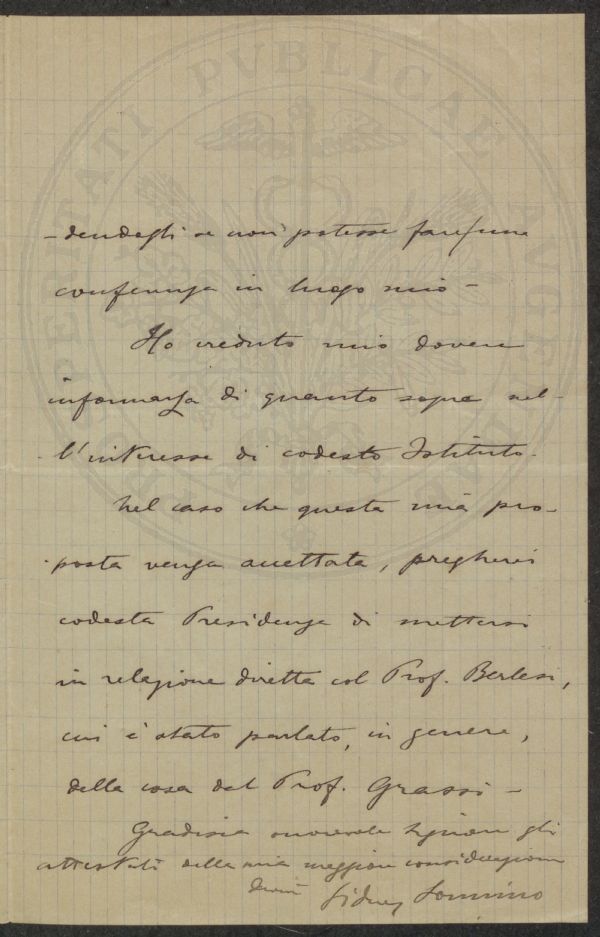 PROSPERITATI PUBLICAE AUGENDAE
-dendogli se non potesse fare una
conferenza in luogo mio -
Ho creduto mio dovere
informarla di quanto sopra nel-
l'interesse di codesto Istituto.
Nel caso che questa mia pro-
posta venga accettata, pregherei
codesta Presidenza di mettersi
in relazione diretta col Prof. Berlesi,
cui è stato parlato, in genere,
della cosa dal Prof. Grassi -
Gradisca onorevole Signore gli
attestati della mia maggior considerazione
Sidney Sonnino